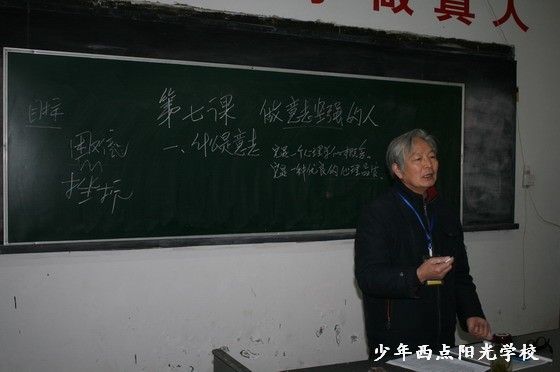 做真人
目标
第七课 做意志坚强的人
困难
挫折
一、什么是意志
它是一个心理学的概念。
它是一种优良的心理品质。
少年西点阳光学校